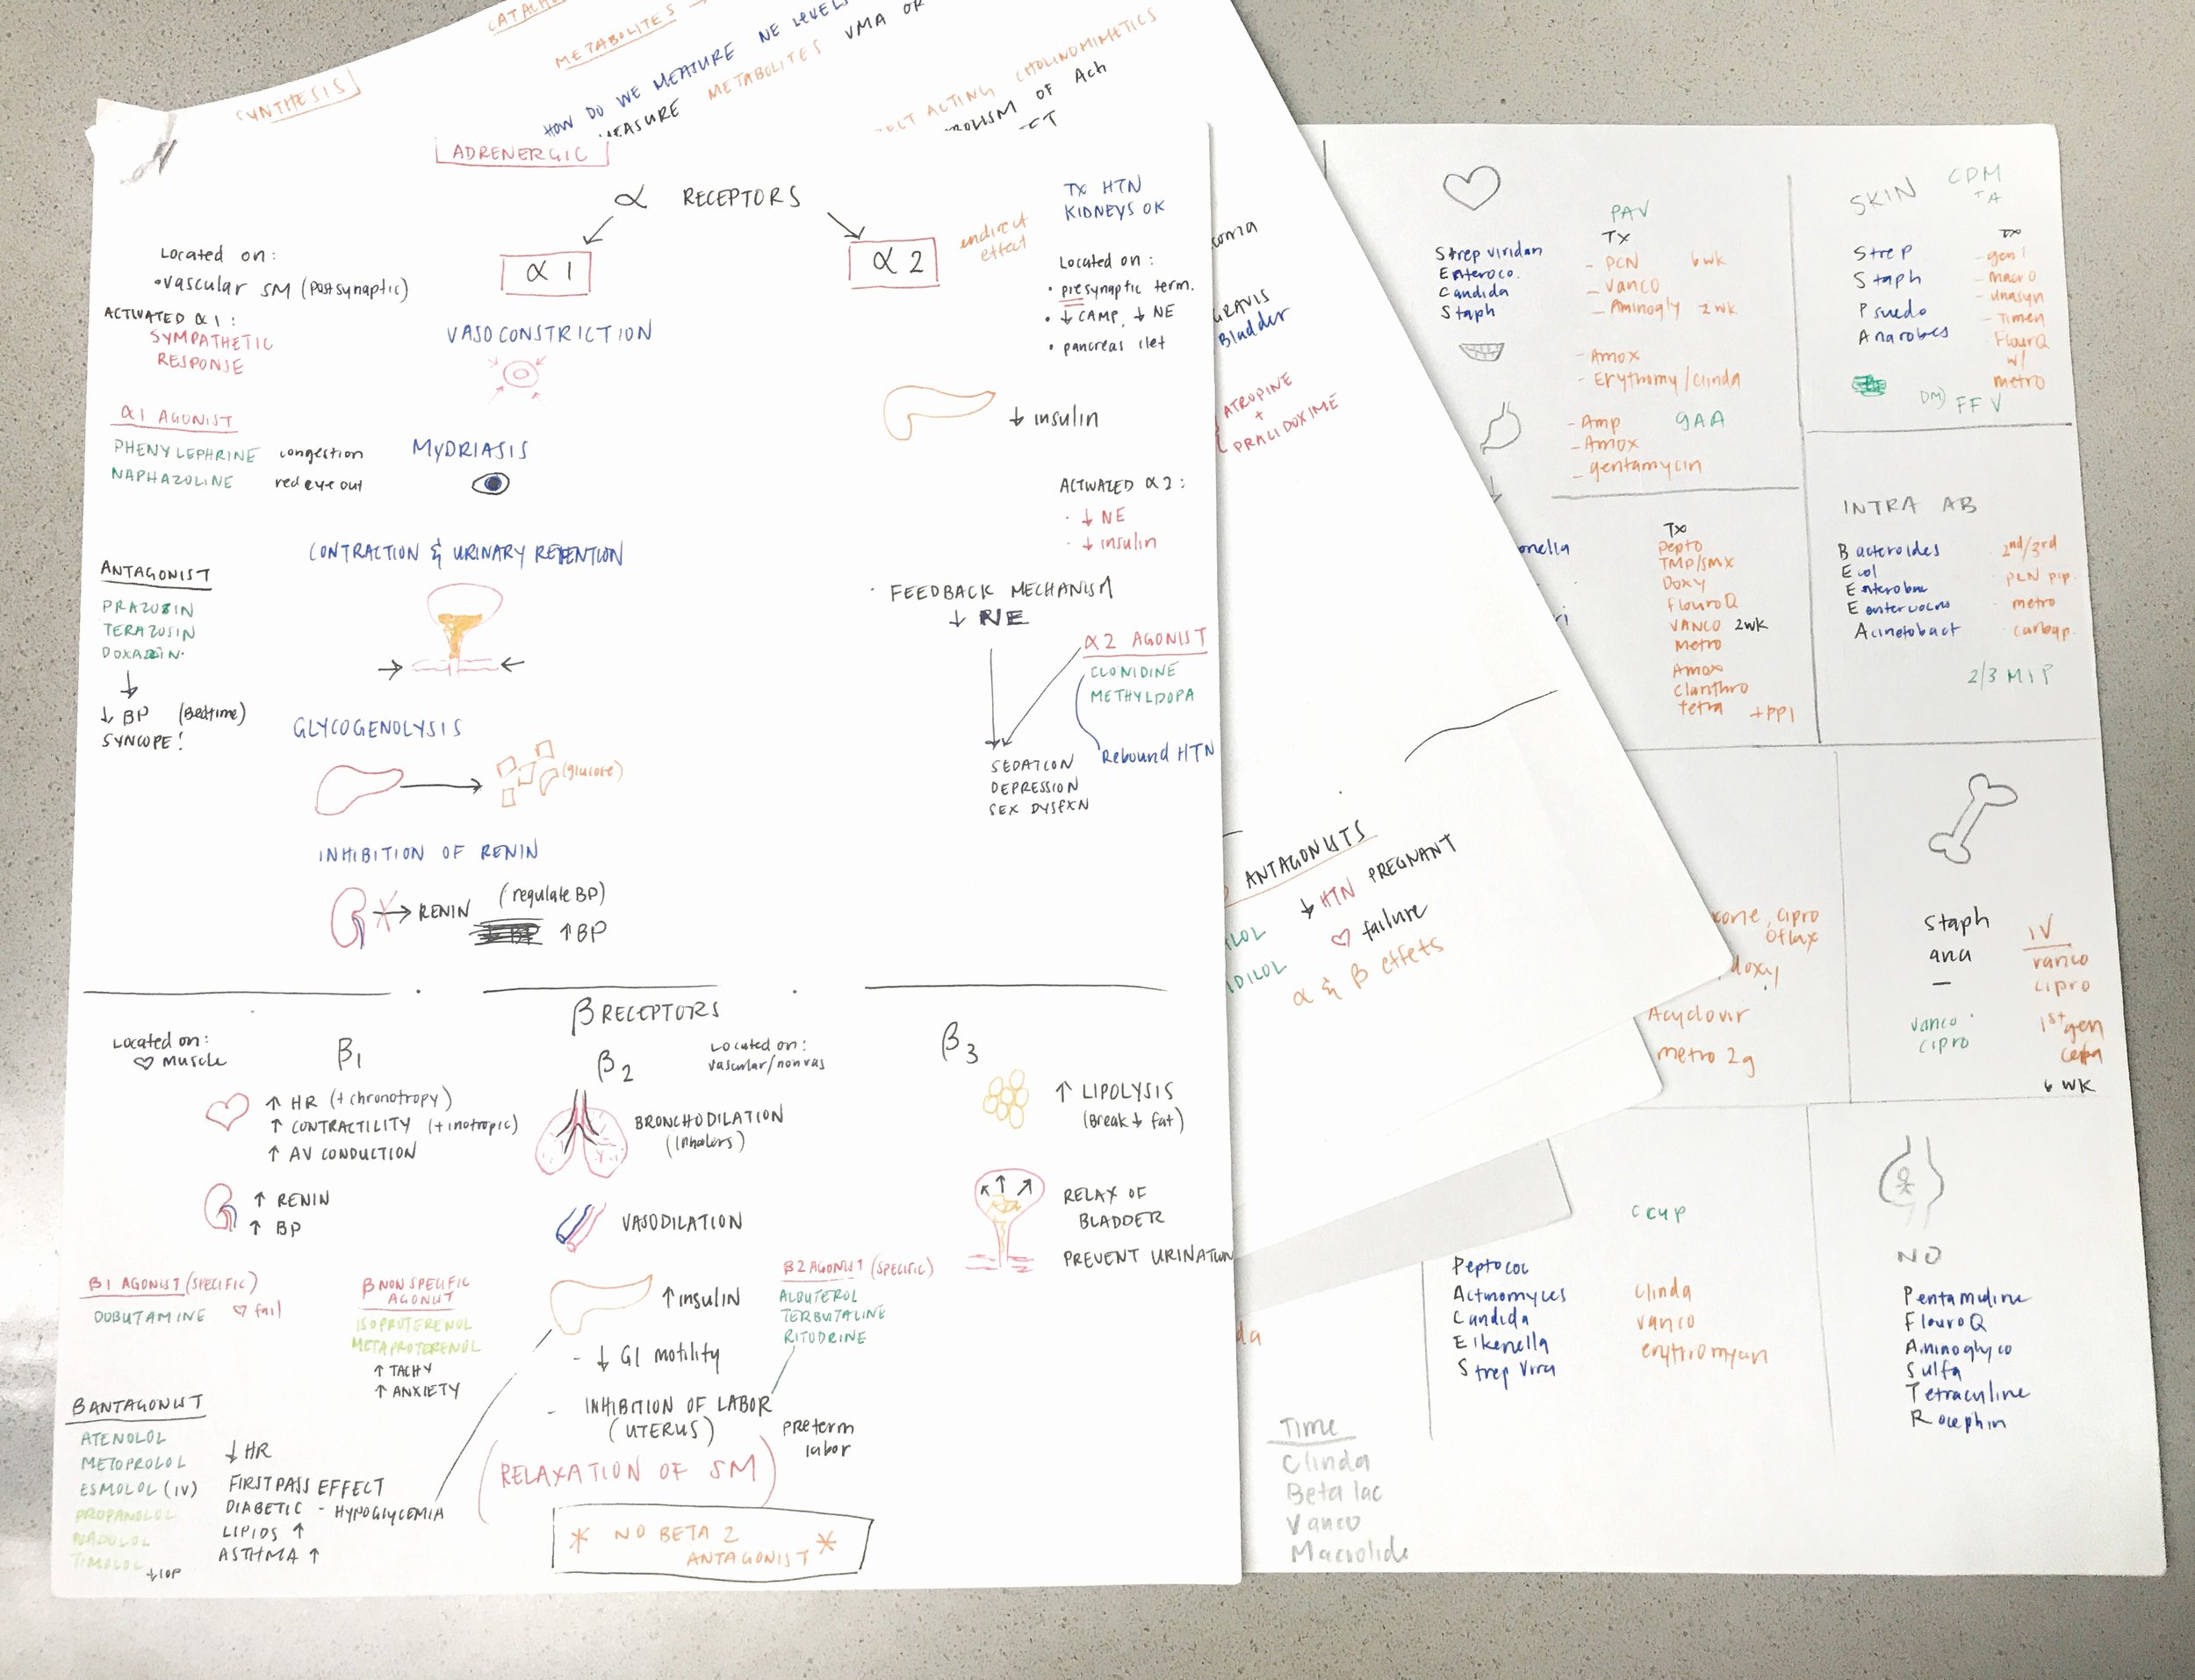 SYNTHESIS
METABOLITES →
HOW DO WE MEASURE NE LEVELS
MEASURE METABOLITES VMA OR
ACTING CHOLINOMIMETICS
OF Ach
ADRENERGIC
α RECEPTORS
α 1
α 2
indirect effect
TX HTN
KIDNEYS OK
Located on:
•vascular SM (postsynaptic)
ACTIVATED α1:
SYMPATHETIC
RESPONSE
α1 AGONIST
PHENYLEPHRINE congestion
NAPHAZOLINE red eye out
ANTAGONIST
PRAZOSIN
TERAZOSIN
DOXAZIN
↓
↓ BP (Bedtime)
SYNCOPE!
VASOCONSTRICTION
MYDRIASIS
CONTRACTION & URINARY RETENTION
GLYCOGENOLYSIS
(glucose)
INHIBITION OF RENIN
→ RENIN (regulate BP)
↑BP
Located on:
• presynaptic term.
• ↓ CAMP, ↓ NE
• pancreas ilet
↓ insulin
ACTIVATED α2:
· ↓ NE
· ↓ insulin
· FEEDBACK MECHANISM
↓ NE
α2 AGONIST
CLONIDINE
METHYLDOPA
Rebound HTN
SEDATION
DEPRESSION
SEX DYSFXN
β RECEPTORS
Located on:
♡ Muscle
β1
↑ HR (+chronotropy)
↑ CONTRACTILITY (+inotropic)
↑ AV CONDUCTION
↑ RENIN
↑ BP
β1 AGONIST (SPECIFIC)
DOBUTAMINE ♡ fail
β NON SPECIFIC
AGONIST
ISOPROTERENOL
METAPROTERENOL
↑ TACHY
↑ ANXIETY
β2
Located on:
vascular/nonvas
BRONCHODILATION
(Inhalers)
VASODILATION
↑insulin
- ↓ GI motility
- INHIBITION OF LABOR
(UTERUS)
preterm
labor
(RELAXATION OF SM)
* NO BETA 2
ANTAGONIST *
β2 AGONIST (SPECIFIC)
ALBUTEROL
TERBUTALINE
RITODRINE
β3
↑ LIPOLYSIS
(Break ↓ fat)
RELAX OF
BLADDER
PREVENT URINATION
BANTAGONIST
ATENOLOL
METOPROLOL
ESMOLOL (IV)
PROPANOLOL
NADOLOL
TIMOLOL
↓IOP
↓HR
FIRST PASS EFFECT
DIABETIC - HYPOGLYCEMIA
LIPIDS ↑
ASTHMA ↑
Bladder
ATROPINE
+
PRALIDOXIME
ANTAGONISTS
↓ HTN PREGNANT
♡ failure
α & β effets
PAV
Tx
Strep viridan
Enteroco.
Candida
Staph
- PCN 6wk
- Vanco
- Aminogly 2wk
- Amox
- Erythomy/clinda
- Amp
- Amox
- gentamycin
gAA
Tx
pepto
TMP/SMX
Doxy
FlouroQ
VANCO 2wk
Metro
Amox
Clarithro
tetra +PPI
SKIN
CDM
TA
Tx
Strep
Staph
Psuedo
Anarobes
- gen 1
- macro
- unasyn
- Timen
FlourQ
w/
metro
DM) FFV
INTRA AB
Bacteroides
Ecol
Enterobac
Acinetobact
2nd/3rd
PCN pip.
metro
carbap.
2/3 MIP
cipro
oflax
doxy
Acyclovir
metro 2g
Staph
ana
—
vanco
cipro
IV
vanco
cipro
1st gen
6 WK
CCUP
Peptococ
Actinomyces
Candida
Eikenella
Clinda
vanco
NO
Pentamidine
FlouroQ
Aminoglyco
Sulfa
Tetracyline
Rocephin
Time
Clinda
Beta lac
Vanco
Macrolide